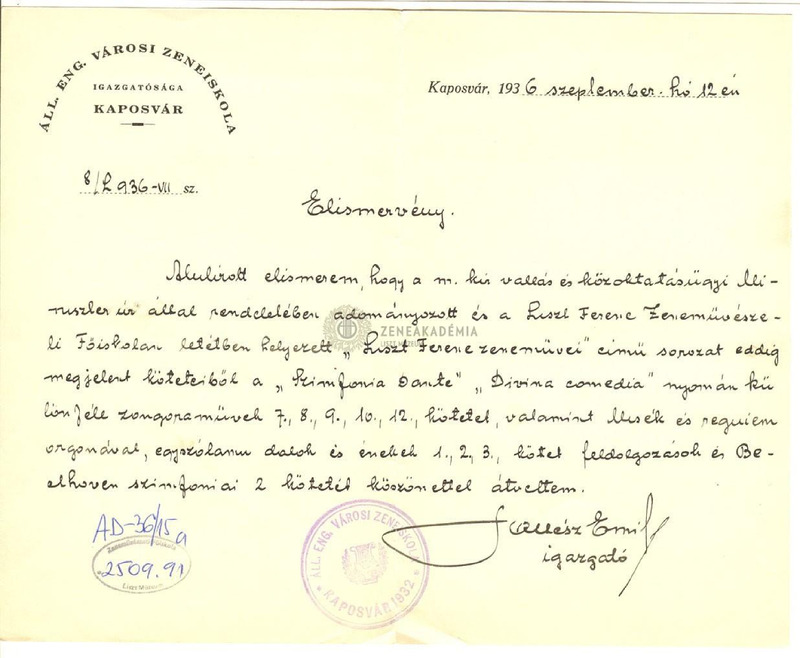 ÁLL. ENG. VÁROSI ZENEISKOLA
IGAZGATÓSÁGA
KAPOSVÁR
Kaposvár, 1936 szeptember hó 12 én
8/L 936-VII sz.
Elismervény.
Alulírott elismerem, hogy a m. kir vallás és közoktatásügyi Mi-
niszter úr által rendeletében adományozott és a Liszt Ferenc Zeneművésze-
ti Főiskolán letétben helyezett „Liszt Ferenc zeneművei" című sorozat eddig
megjelent köteteiből a „Szimfonia Dante" „Divina comedia" nyomán kü
lönféle zongoraművek 7., 8., 9., 10., 12., kötetet, valamint Misék és requiem
orgonával, egyszólamu dalok és énekek 1., 2., 3., kötet feldolgozások és Be-
ethoven szimfoniai 2 kötetét köszönettel átvettem.
ZENEAKADÉMIA
LISZT MÚZEUM
Emil
igazgató
ÁLL. ENG. VÁROSI ZENEISKOLA
KAPOSVÁR 1932
AD-36/15a
Zeneművészeti Főiskola
2509.91
Liszt Múzeum